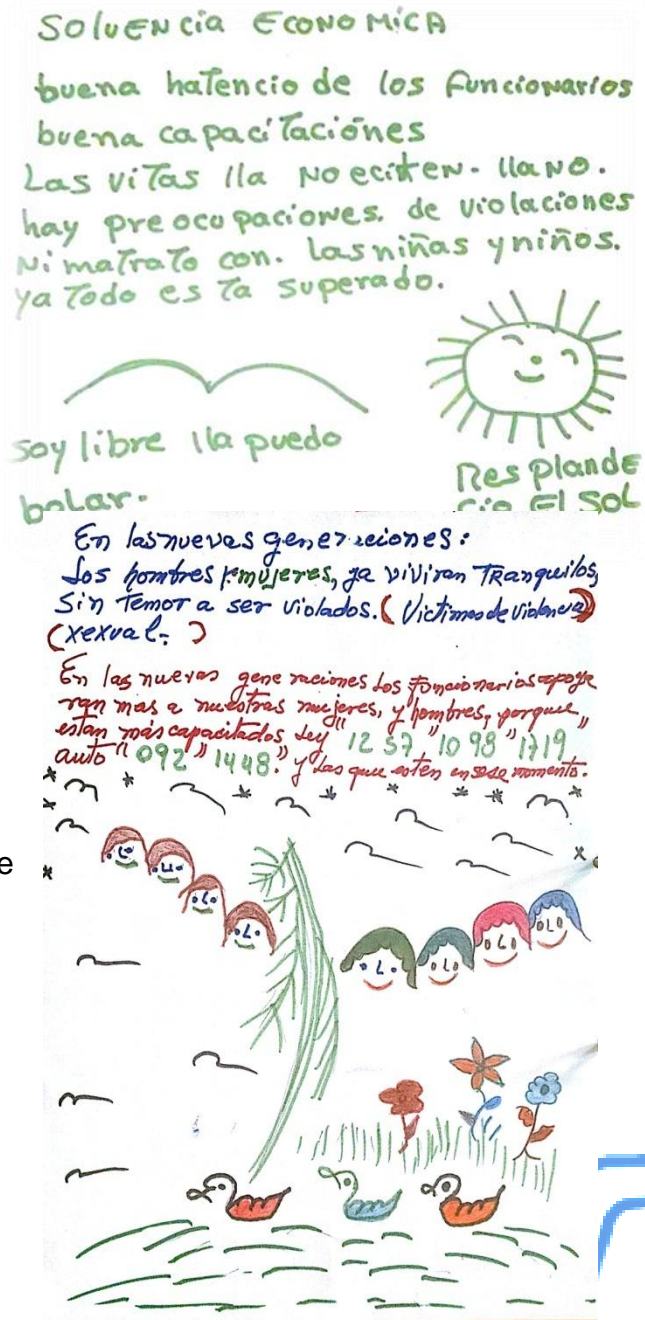 SOLVENCia ECONOMiCA
buena hatencio de los funcionarios
buena capacitaciónes
Las vitas lla No eciten. llaNO.
hay preocupaciones. de violaciones
Ni matrato con. las niñas y niños.
ya todo es ta superado.
soy libre lla puedo
bolar.
Resplande
cio El SOL
En las nuevas generaciones:
Los hombres y mujeres, ya viviran TRanquilos,
Sin Temor a ser violados. (Victimas de violencia)
(xexual.)
En las nuevas generaciones Los funcionarios apoya
ran mas a nuestras mujeres, y hombres, porque,
estan más capacitados Ley "12 57" "10 98" "1719
auto "092" "1448." y las que esten en ese momento.
e